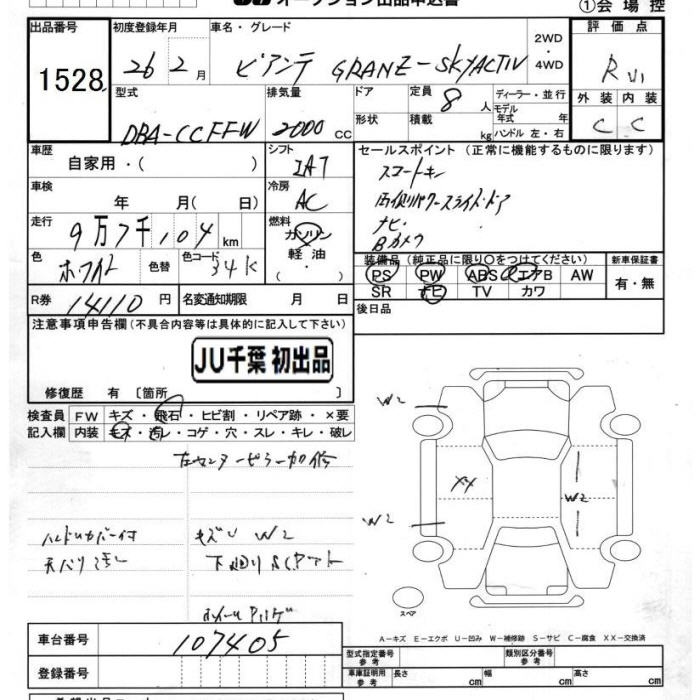 オークション出品申込書
①会場控
出品番号 初度登録年月 車名・グレード 評価点
1528 26 2月 ビアンテ GRANZ-SKYACTIV 2WD・4WD R
外装 内装
C C
型式 排気量 ドア 定員 8人 ディーラー・並行
DBA-CCFFW 2000cc 形状 積載 kg モデル年式 年
ハンドル 左・右
車歴 自家用・( ) シフト IAT セールスポイント (正常に機能するものに限ります)
スマートキー
車検 年 月( 日) 冷房 AC 両側パワースライドドア
ナビ
走行 9万7千104km 燃料 ガソリン Bカメラ
軽油
色 ホワイト 色替 色コード 34K ・ 装備品 (純正品に限り○をつけてください) 新車保証書
PS PW ABS エアB AW 有・無
SR ナビ TV カワ
R券 14110円 名変通知期限 月 日 後日品
注意事項申告欄(不具合内容等は具体的に記入して下さい)
JU千葉 初出品
修復歴 有 [箇所 ]
検査員 FW キズ・飛石・ヒビ割・リペア跡・×要
記入欄 内装 キズ・汚レ・コゲ・穴・スレ・キレ・破レ
左センターピラー加修
ハンドルカバー付 キズU W2
天バリ汚レ 下廻りSCアト
W2
XX W2
W2
スペア
A-キズ E-エクボ U-凹み W-補修跡 S-サビ C-腐食 XX-交換済
車台番号 107405
型式指定番号 参考 類別区分番号 参考
登録番号 車庫証明用 参考 長さ cm 幅 cm 高さ cm